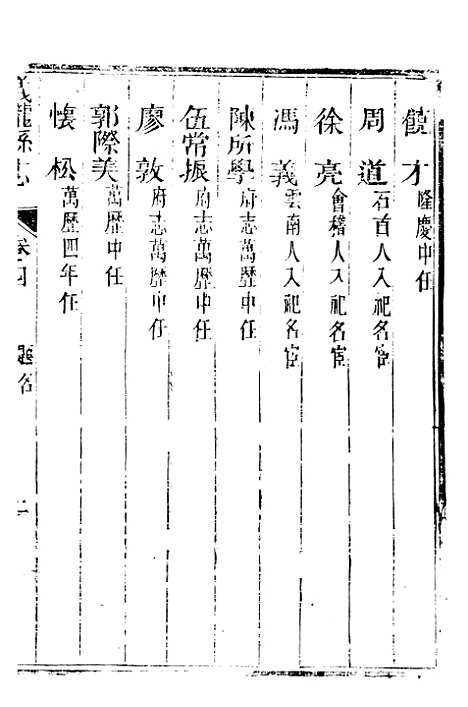 饒才 隆慶中任
周道 石首人入祀名宦
徐亮 會稽人入祀名宦
馮義 雲南人入祀名宦
陳所學 府志萬歷中任
伍常振 府志萬歷中任
廖敦 府志萬歷中任
郭際美 萬歷中任
懷松 萬歷四年任
儀隴縣志 卷之四 題名